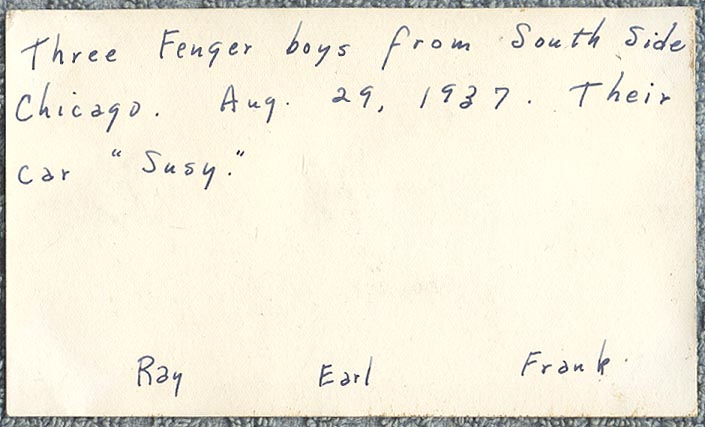 Three Fenger boys from South Side
Chicago. Aug. 29, 1937. Their
car "Susy."
Ray Earl Frank.